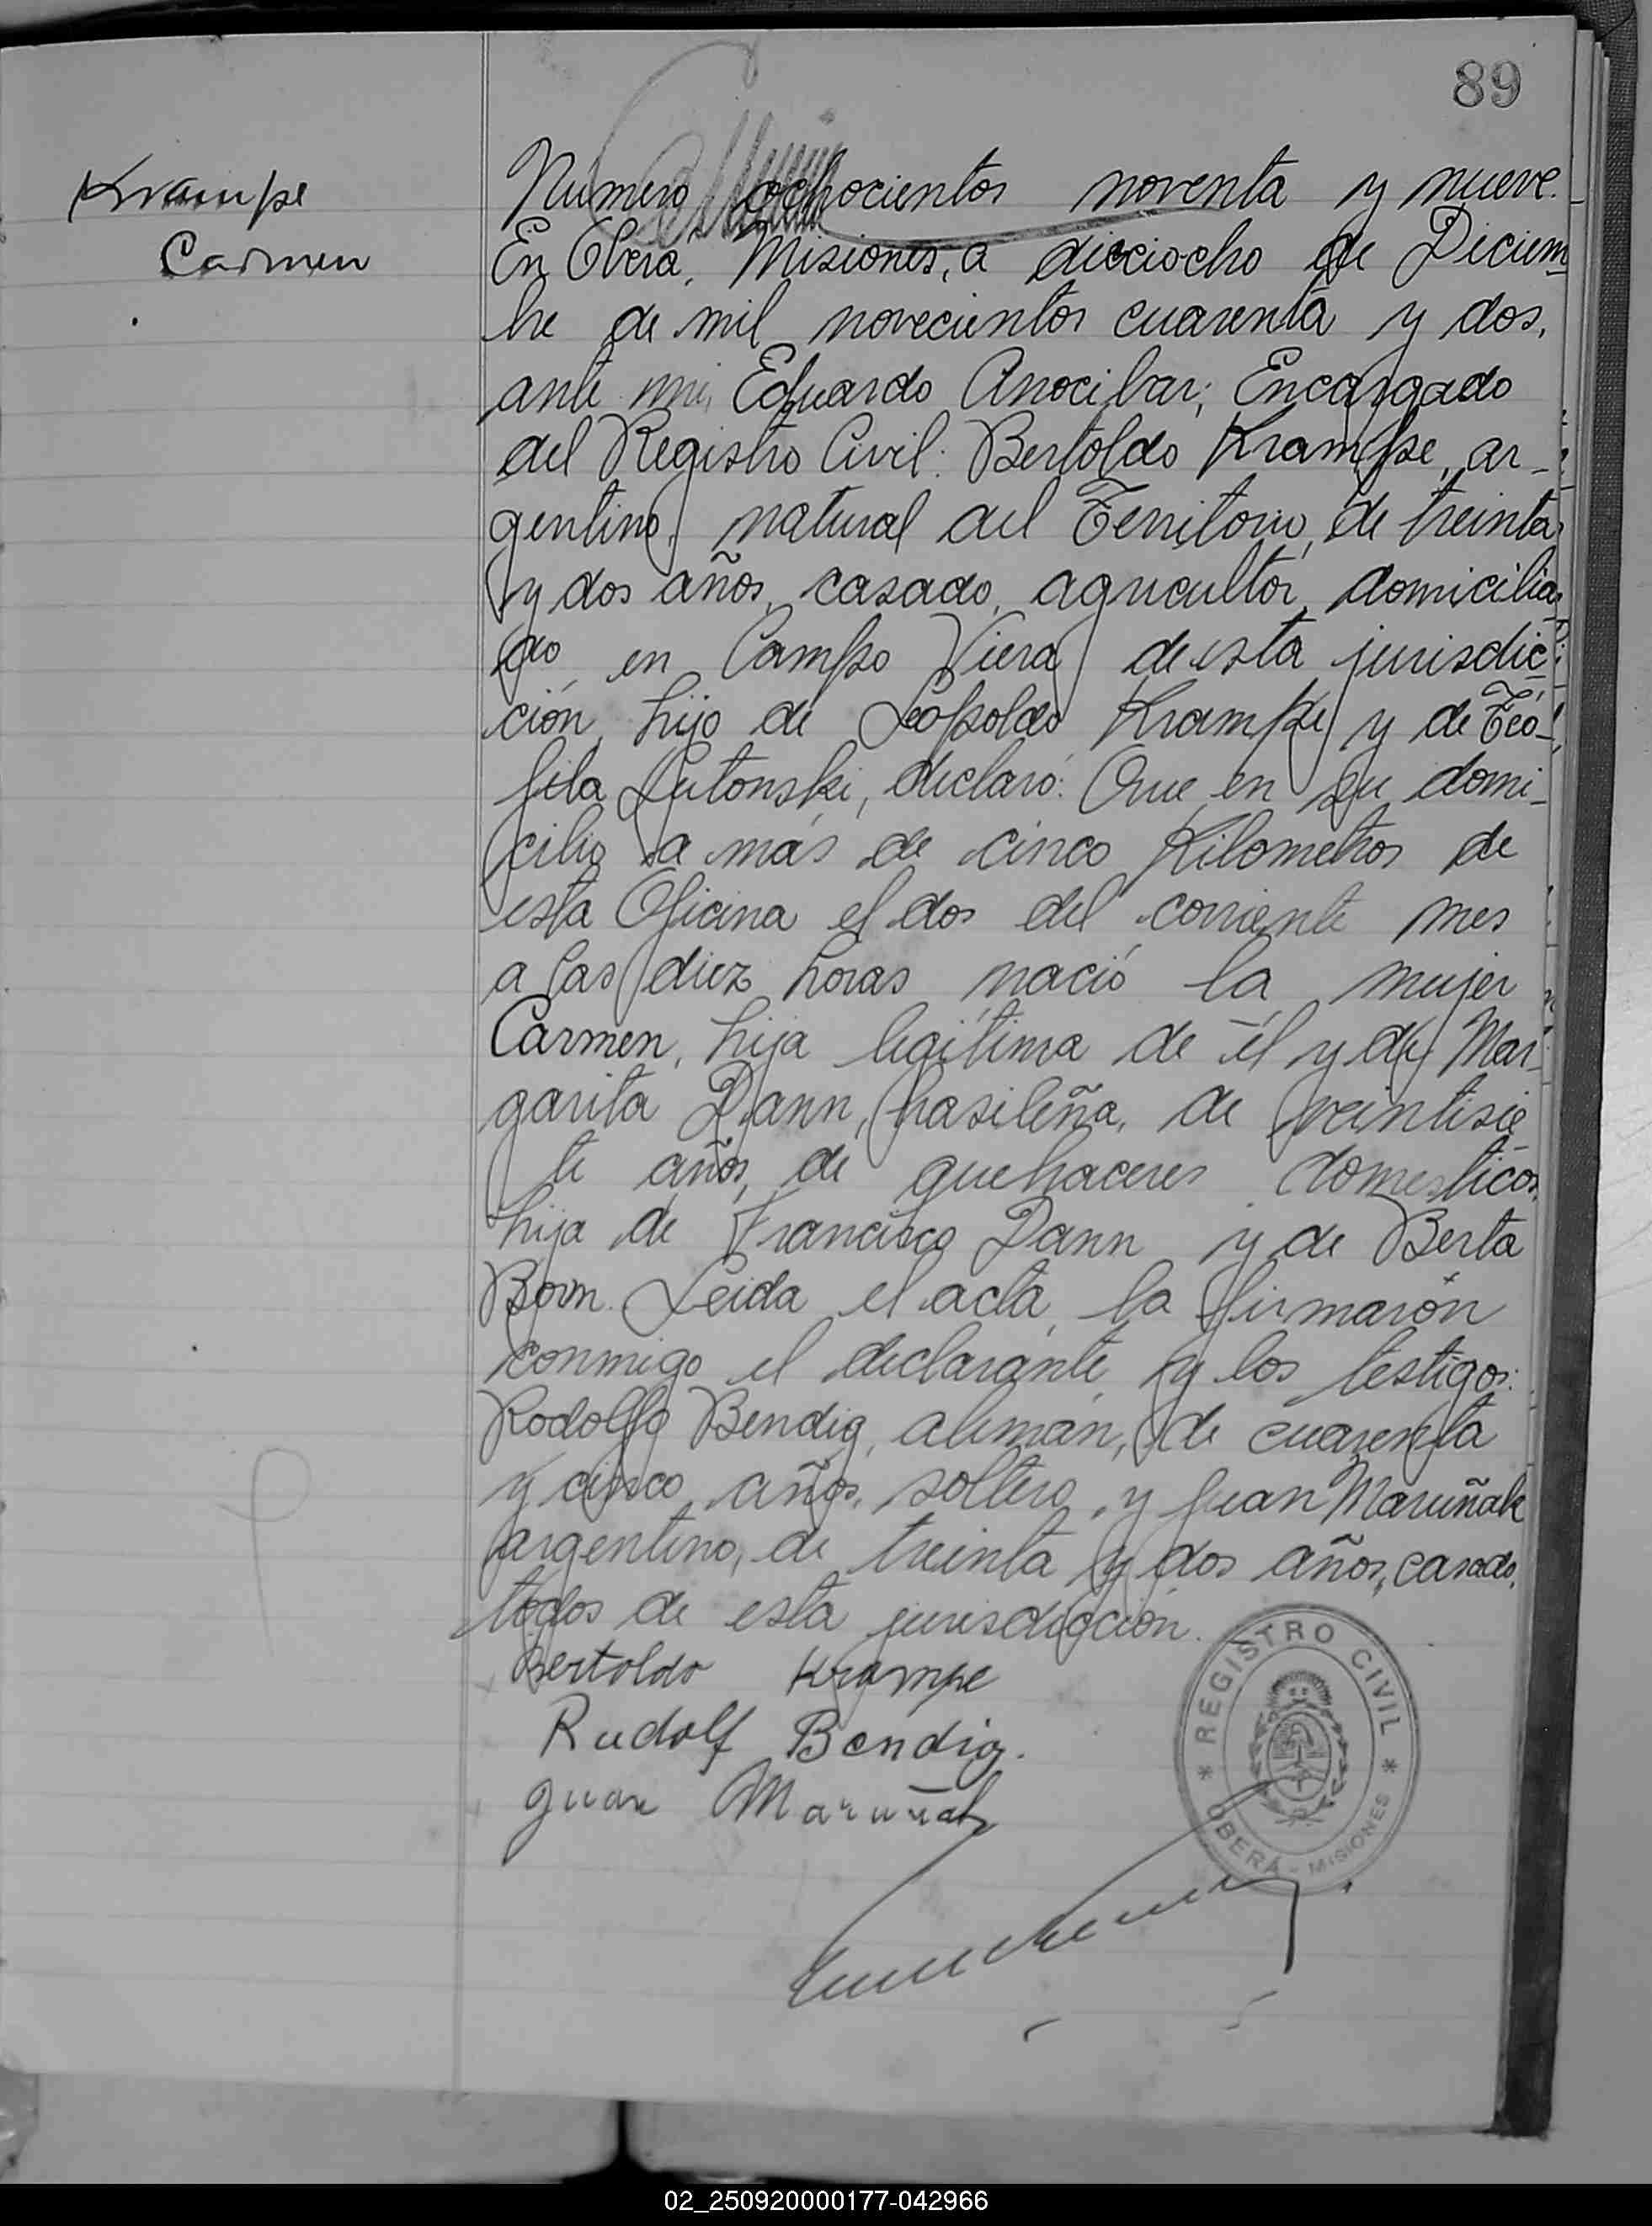 89
Krampe
Carmen
Numero ochocientos noventa y nueve.
En Oberá, Misiones, a dieciocho de Diciem
bre de mil novecientos cuarenta y dos,
ante mi, Eduardo Anocibar, Encargado
del Registro Civil: Bertoldo Krampe, ar-
gentino, natural del Territorio, de treinta
y dos años, casado, agricultor, domicilia
do en Campo Viera de esta jurisdic-
ción, hijo de Leopoldo Krampe y de Teó-
fila Lutonski, declaró: Que en su domi-
cilio a más de cinco Kilometros de
esta Oficina el dos del corriente mes
a las diez horas nació la mujer
Carmen, hija legítima de él y de Mar-
garita Dann, brasileña, de veintisie
te años, de quehaceres domesticos,
hija de Francisco Dann y de Berta
Born. Leida el acta, la firmarón
conmigo el declarante y los testigos:
Rodolfo Bendig, alemán, de cuarenta
y cinco años, soltero, y Juan Maruñak
argentino, de treinta y dos años, casado,
todos de esta jurisdicción.
Bertoldo Krampe
Rudolf Bendig.
Juan Maruñak
REGISTRO CIVIL
OBERÁ - MISIONES
02_250920000177-042966